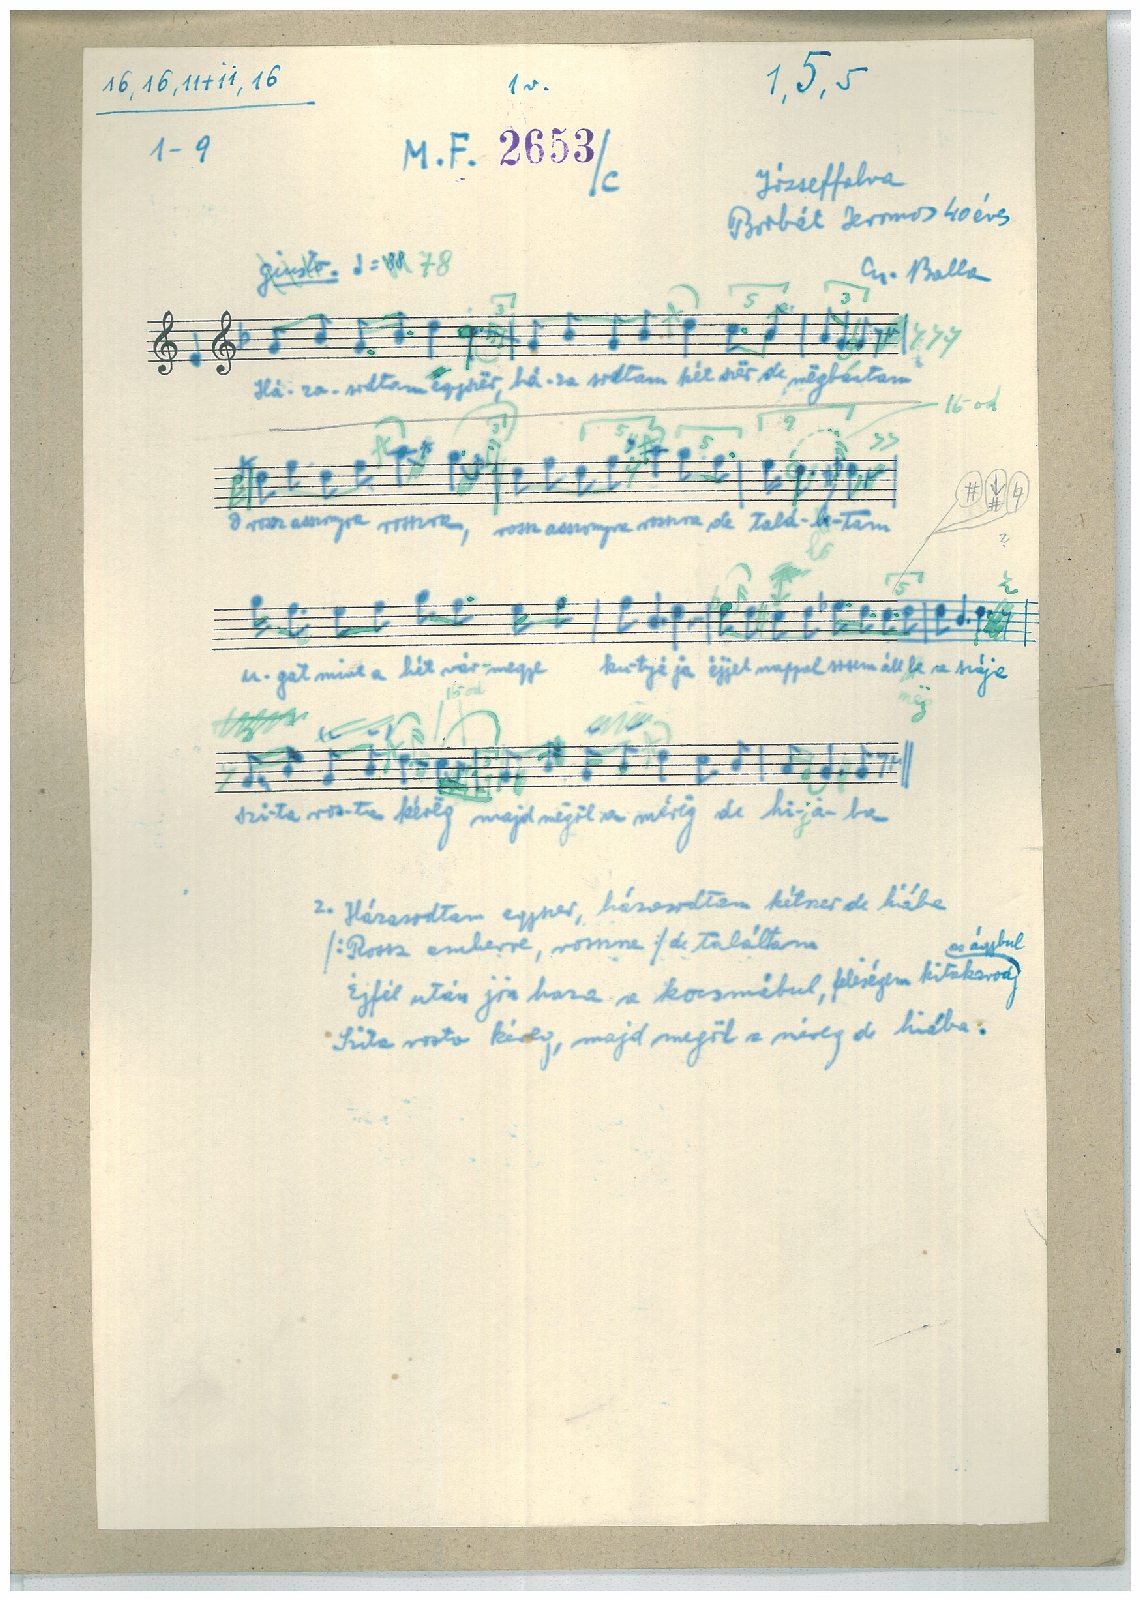 16, 16, 11+11, 16
1 v.
1, 5, 5
1-9
M.F. 2653/c
Józseffalva
Borbét Jeromos 40 éves
giusto. 78
Gy. Balla
3 5 3
Há-za-sodtam egyszër, há-za sodtam két szër de mëgbántam
16-od
3 5 5 9
rossz asszonyra rosszra, rossz asszonyra rosszra de talá-l-tam
5
u-gat mint a hét vár-mëgye kutyája éjjel nappal sosem áll be a szája
még
16-od
szi-ta ros-ta kérëg majd mëgöl a mérëg de hi-já-ba
2. Házasodtam egyszer, házasodtam kétszer de hiába
/: Rossz emberre, rosszra :/ de találtam
az ágybul
Éjfél után jön haza a kocsmábul, feleségem kitakarod
Szita rosta kéreg, majd megöl a méreg de hiába.